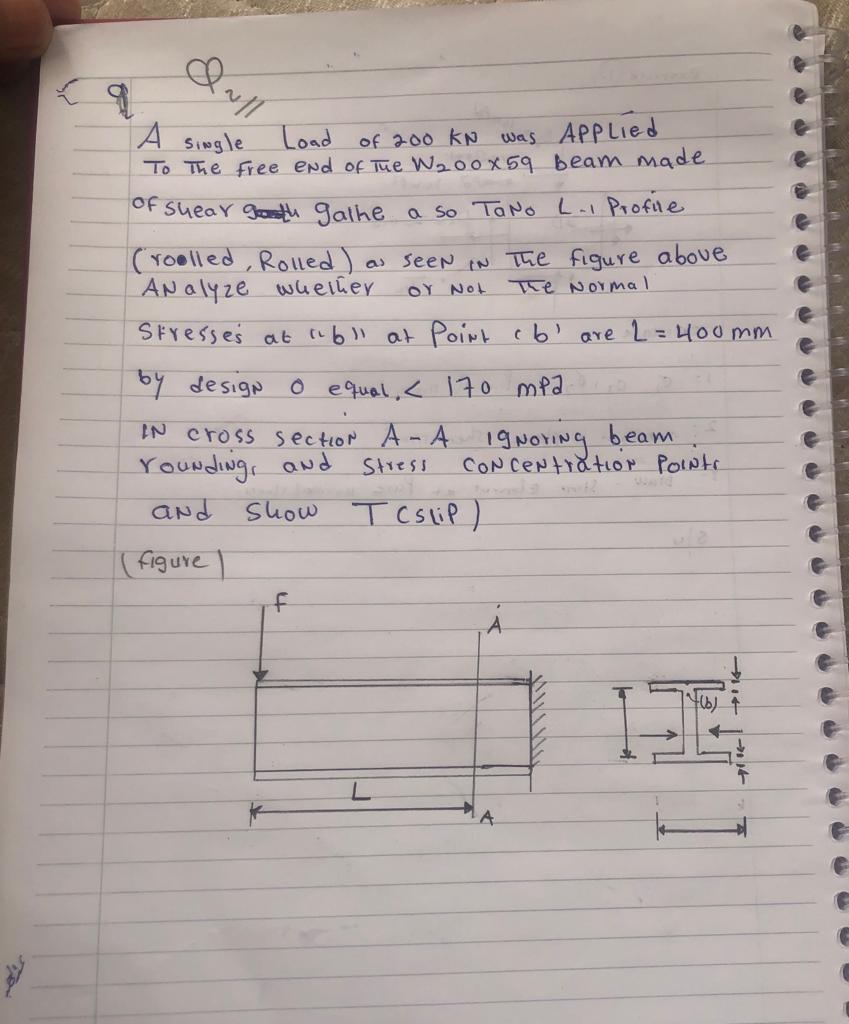 q Q2
A single Load of 200 KN was APPLied
To The free end of The W200x59 beam made
of shear galhe a so TaNo L-1 Profile
(roolled, Rolled) as seen in The figure above
ANalyze wheTher or Not The Normal
Stresses at "b" at Point 'b' are L = 400mm
by design o equal, < 170 mpa
IN cross section A-A ignoring beam.
rounding, and stress concentration Points
and Show T (slip)
(figure)
F
A
(b)
L
A